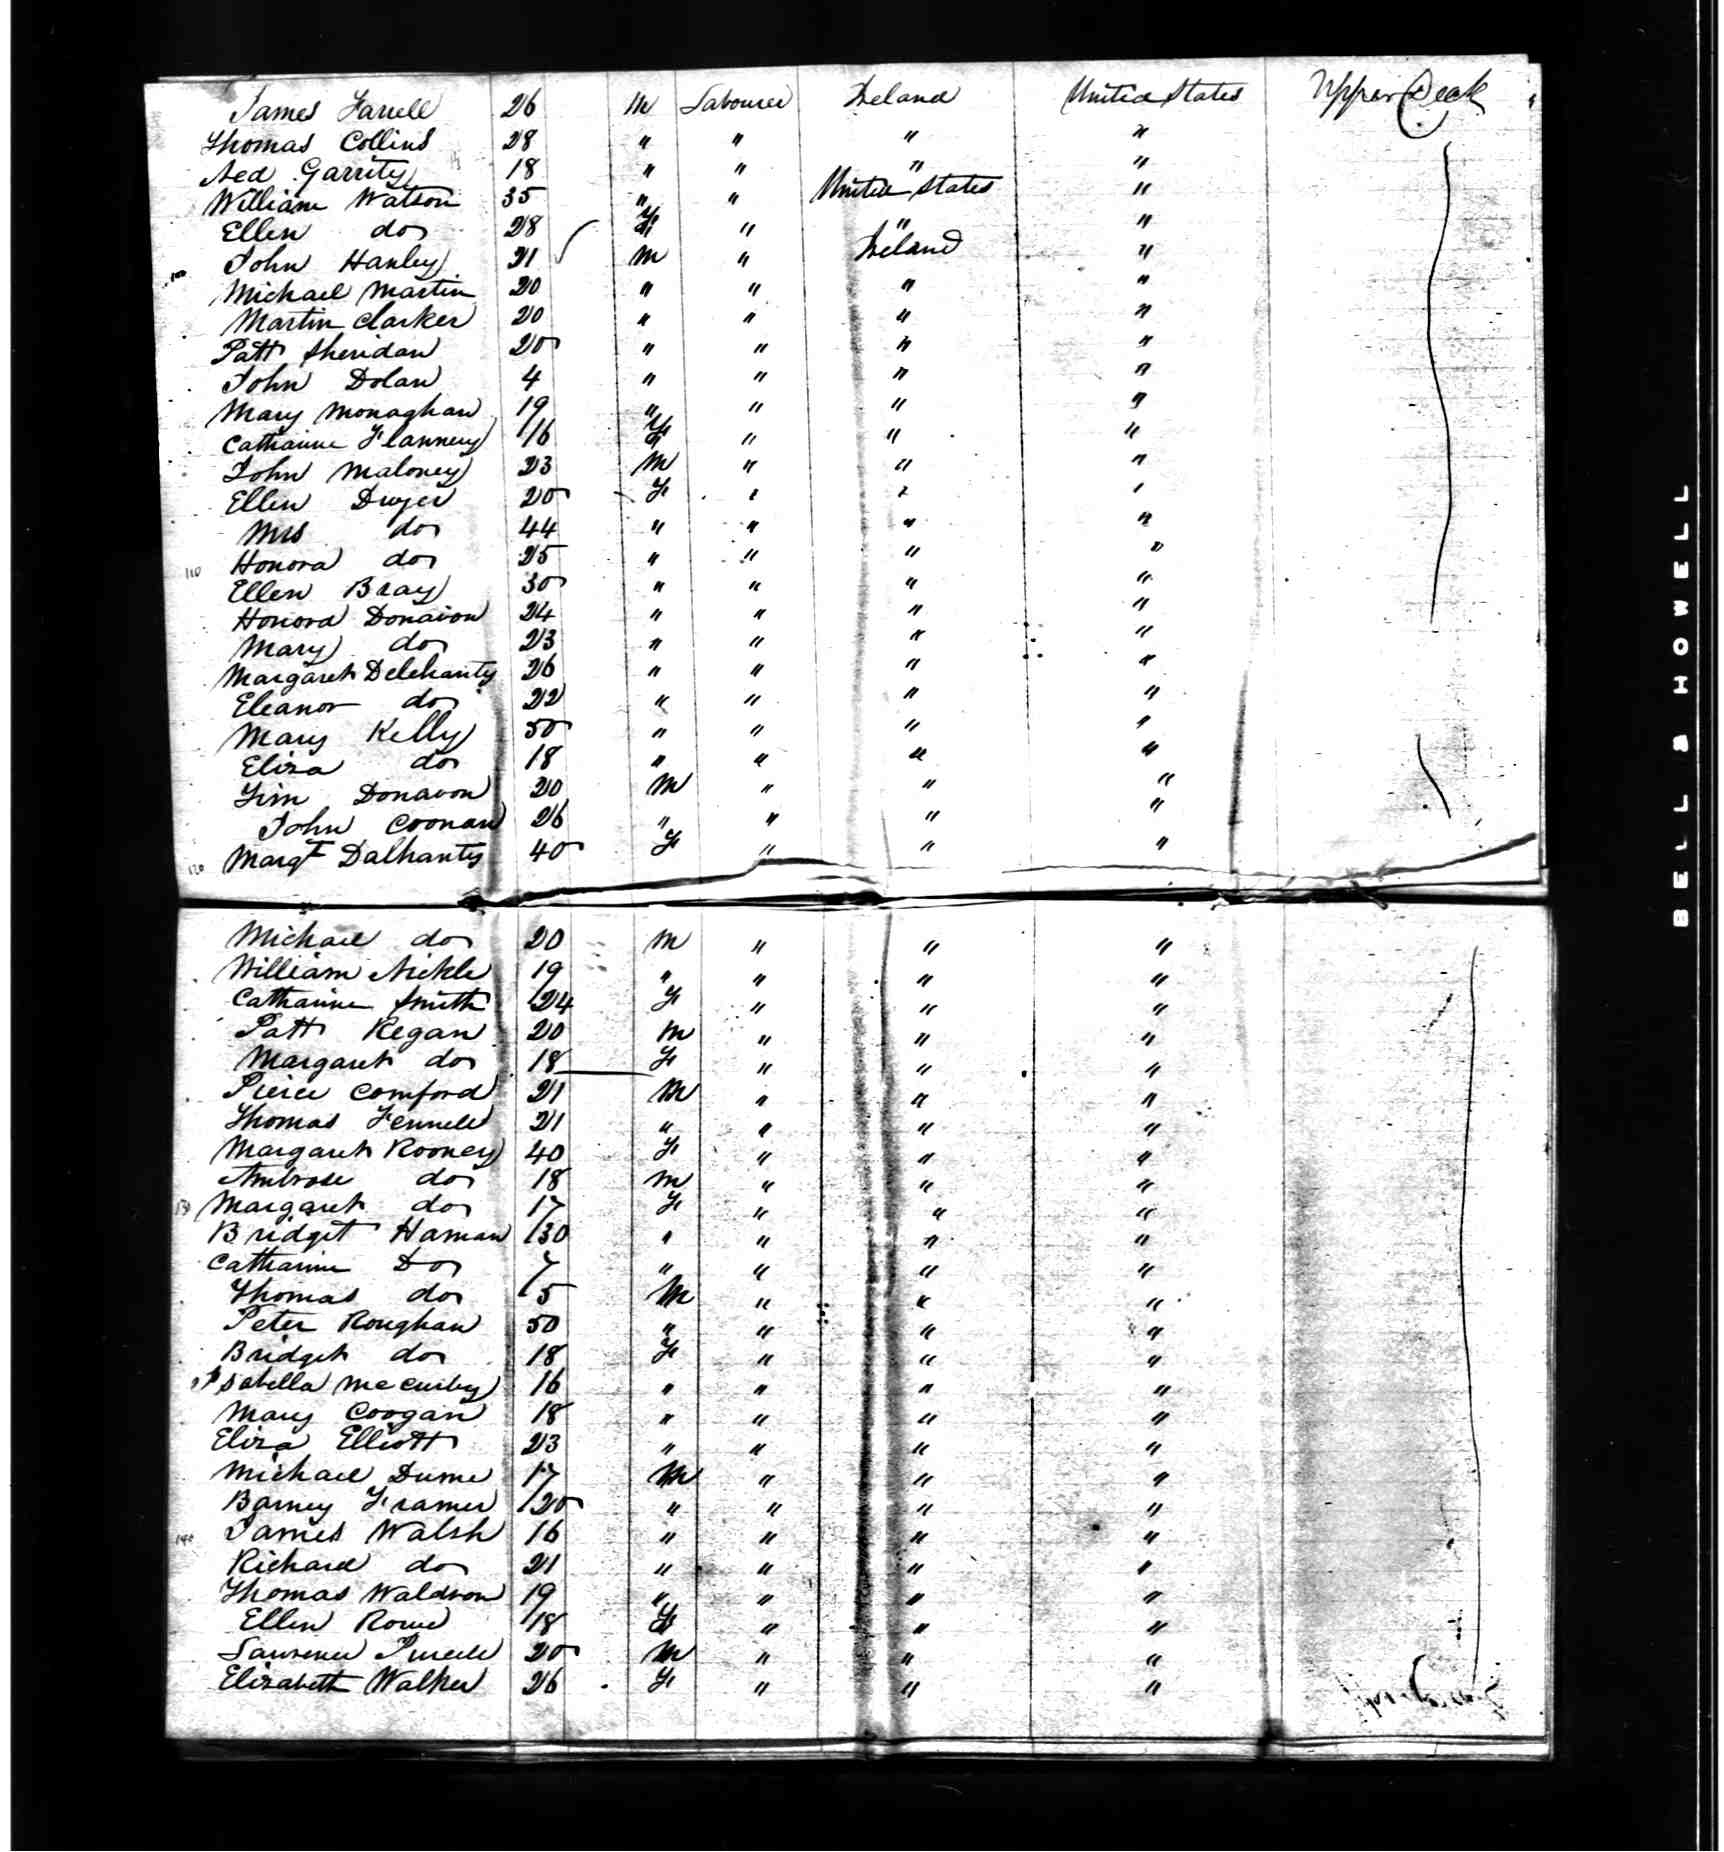 James Farrell 26 m Labourer Ireland United States Upper Deck
Thomas Collins 28 " " " "
Ned Garrity 18 " " " "
William Watson 35 " " United States "
Ellen do 28 F " " "
100 John Hanley 21 m " Ireland "
Michael Martin 20 " " " "
Martin Clarker 20 " " " "
Patt Sheridan 20 " " " "
John Dolan 4 " " " "
Mary Monaghan 19 " " " "
Catharine Flannery 16 F " " "
John Maloney 23 m " " "
Ellen Dwyer 20 F " " "
Mrs do 44 " " " "
110 Honora do 25 " " " "
Ellen Bray 30 " " " "
Honora Donavon 24 " " " "
Mary do 23 " " " "
Margaret Delehanty 26 " " " "
Eleanor do 22 " " " "
Mary Kelly 50 " " " "
Eliza do 18 " " " "
Tim Donavon 20 m " " "
John Coonan 26 " " " "
120 Margt Dalhanty 40 F " " "
Michael do 20 m " " "
William Nickle 19 " " " "
Catharine Smith 24 F " " "
Patt Regan 20 m " " "
Margaret do 18 F " " "
Pierce Comford 21 m " " "
Thomas Fennell 21 " " " "
Margaret Rooney 40 F " " "
Ambrose do 18 m " " "
130 Margaret do 17 F " " "
Bridget Hannan 30 " " " "
Catharine Do 7 " " " "
Thomas do 5 m " " "
Peter Roughan 50 " " " "
Bridget do 18 F " " "
Isabella 16 " " " "
Mary Coogan 18 " " " "
Eliza Elliott 23 " " " "
Michael Dunne 17 m " " "
Barney 20 " " " "
140 James Walsh 16 " " " "
Richard do 21 " " " "
Thomas Waldron 19 " " " "
Ellen Rowe 18 F " " "
Lawrence Purcell 20 m " " "
Elizabeth Walker 26 F " " "
BELL & HOWELL